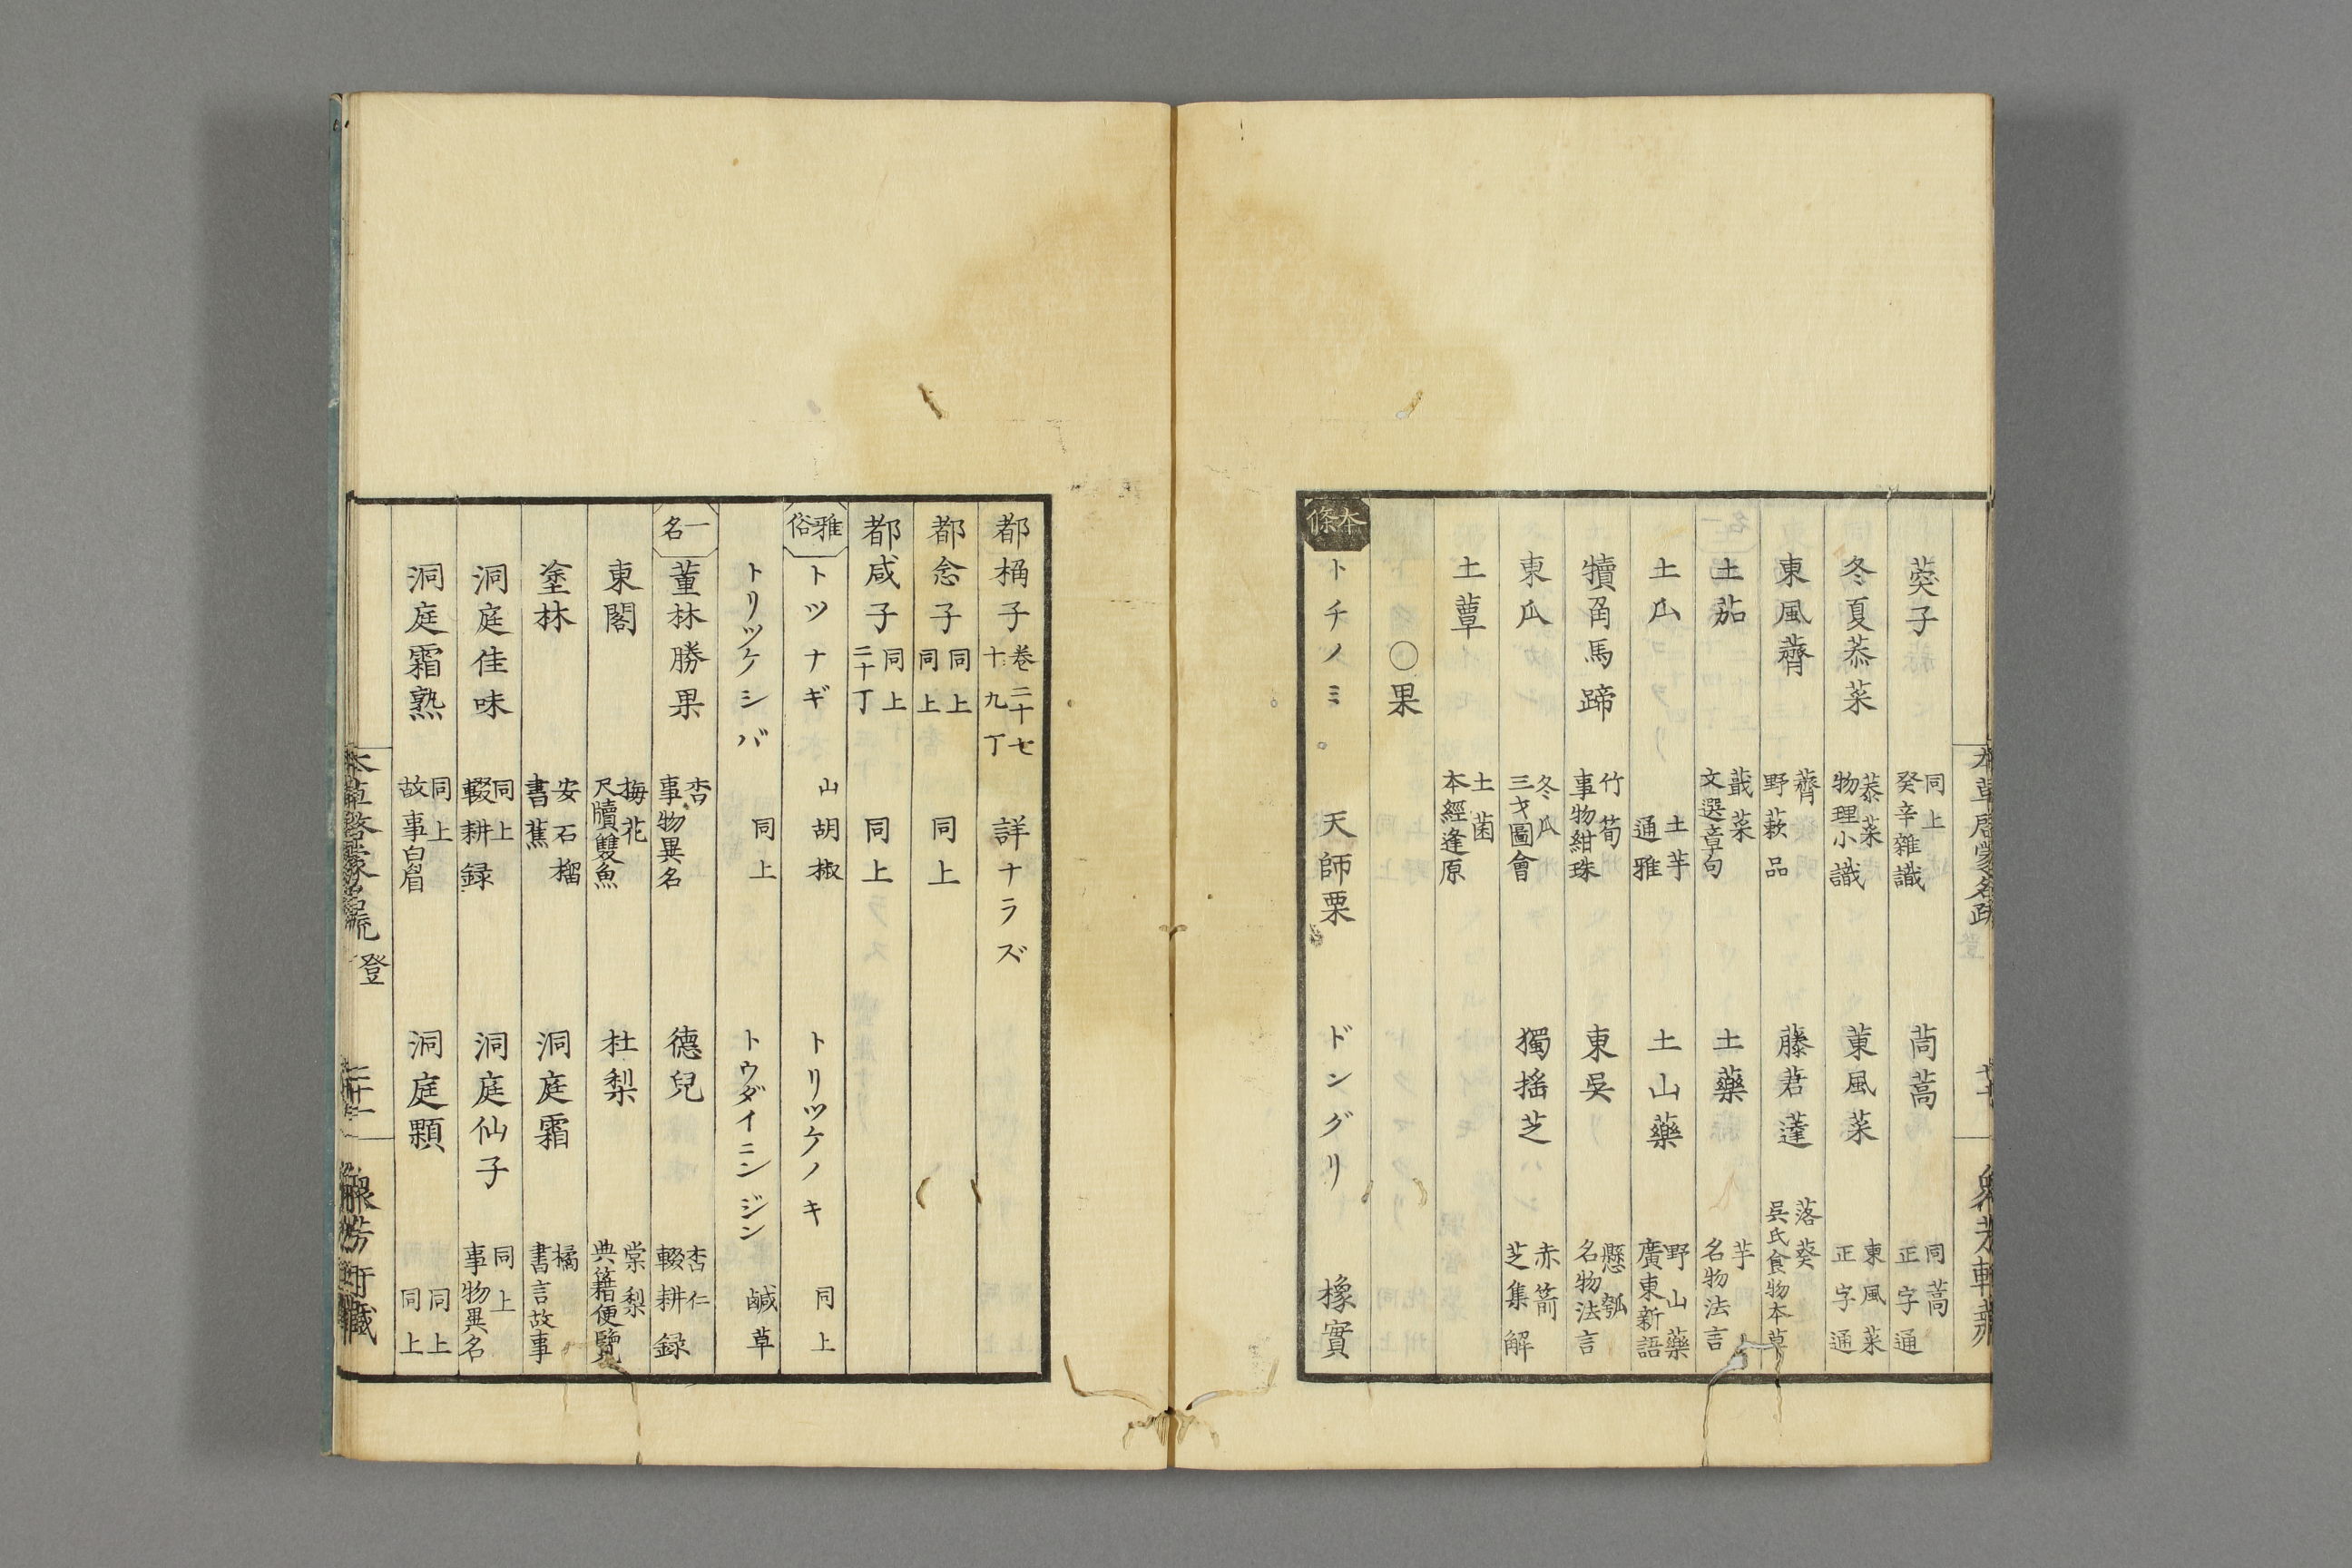 葖子 同上 癸辛雜識 茼蒿 同蒿 正字通
冬夏菾菜 菾菜 物理小識 菄風菜 東風菜 正字通
東風薺 薺 野蔌品 藤莙薘 落葵 吳氏食物本草
土茄 蕺菜 文選章句 土藥 芋 名物法言
土瓜 土芋 通雅 土山藥 野山藥 廣東新語
犢角馬蹄 竹筍 事物紺珠 東吳 懸瓠 名物法言
東瓜 冬瓜 三才圖會 獨搖芝 赤箭 芝集解
土蕈 土菌 本經逢原
○果
本條 トチノミ。 天師栗 ドングリ 橡實
都桷子 卷二十七 十九丁 詳ナラズ
都念子 同上 同上 同上
都咸子 同上 二十丁 同上
雅俗 トツナギ 山胡椒 トリツケノキ 同上
トリツケシバ 同上 トウダイニンジン 鹹草
一名 董林勝果 杏 事物異名 德兒 杏仁 輟耕録
東閣 梅花 尺牘雙魚 杜梨 棠梨 典籍便覽
塗林 安石榴 書蕉 洞庭霜 橘 書言故事
洞庭佳味 同上 輟耕録 洞庭仙子 同上 事物異名
洞庭霜熟 同上 故事白眉 洞庭顆 同上 同上
本草啓蒙名疏 登 二十一 衆芳軒藏